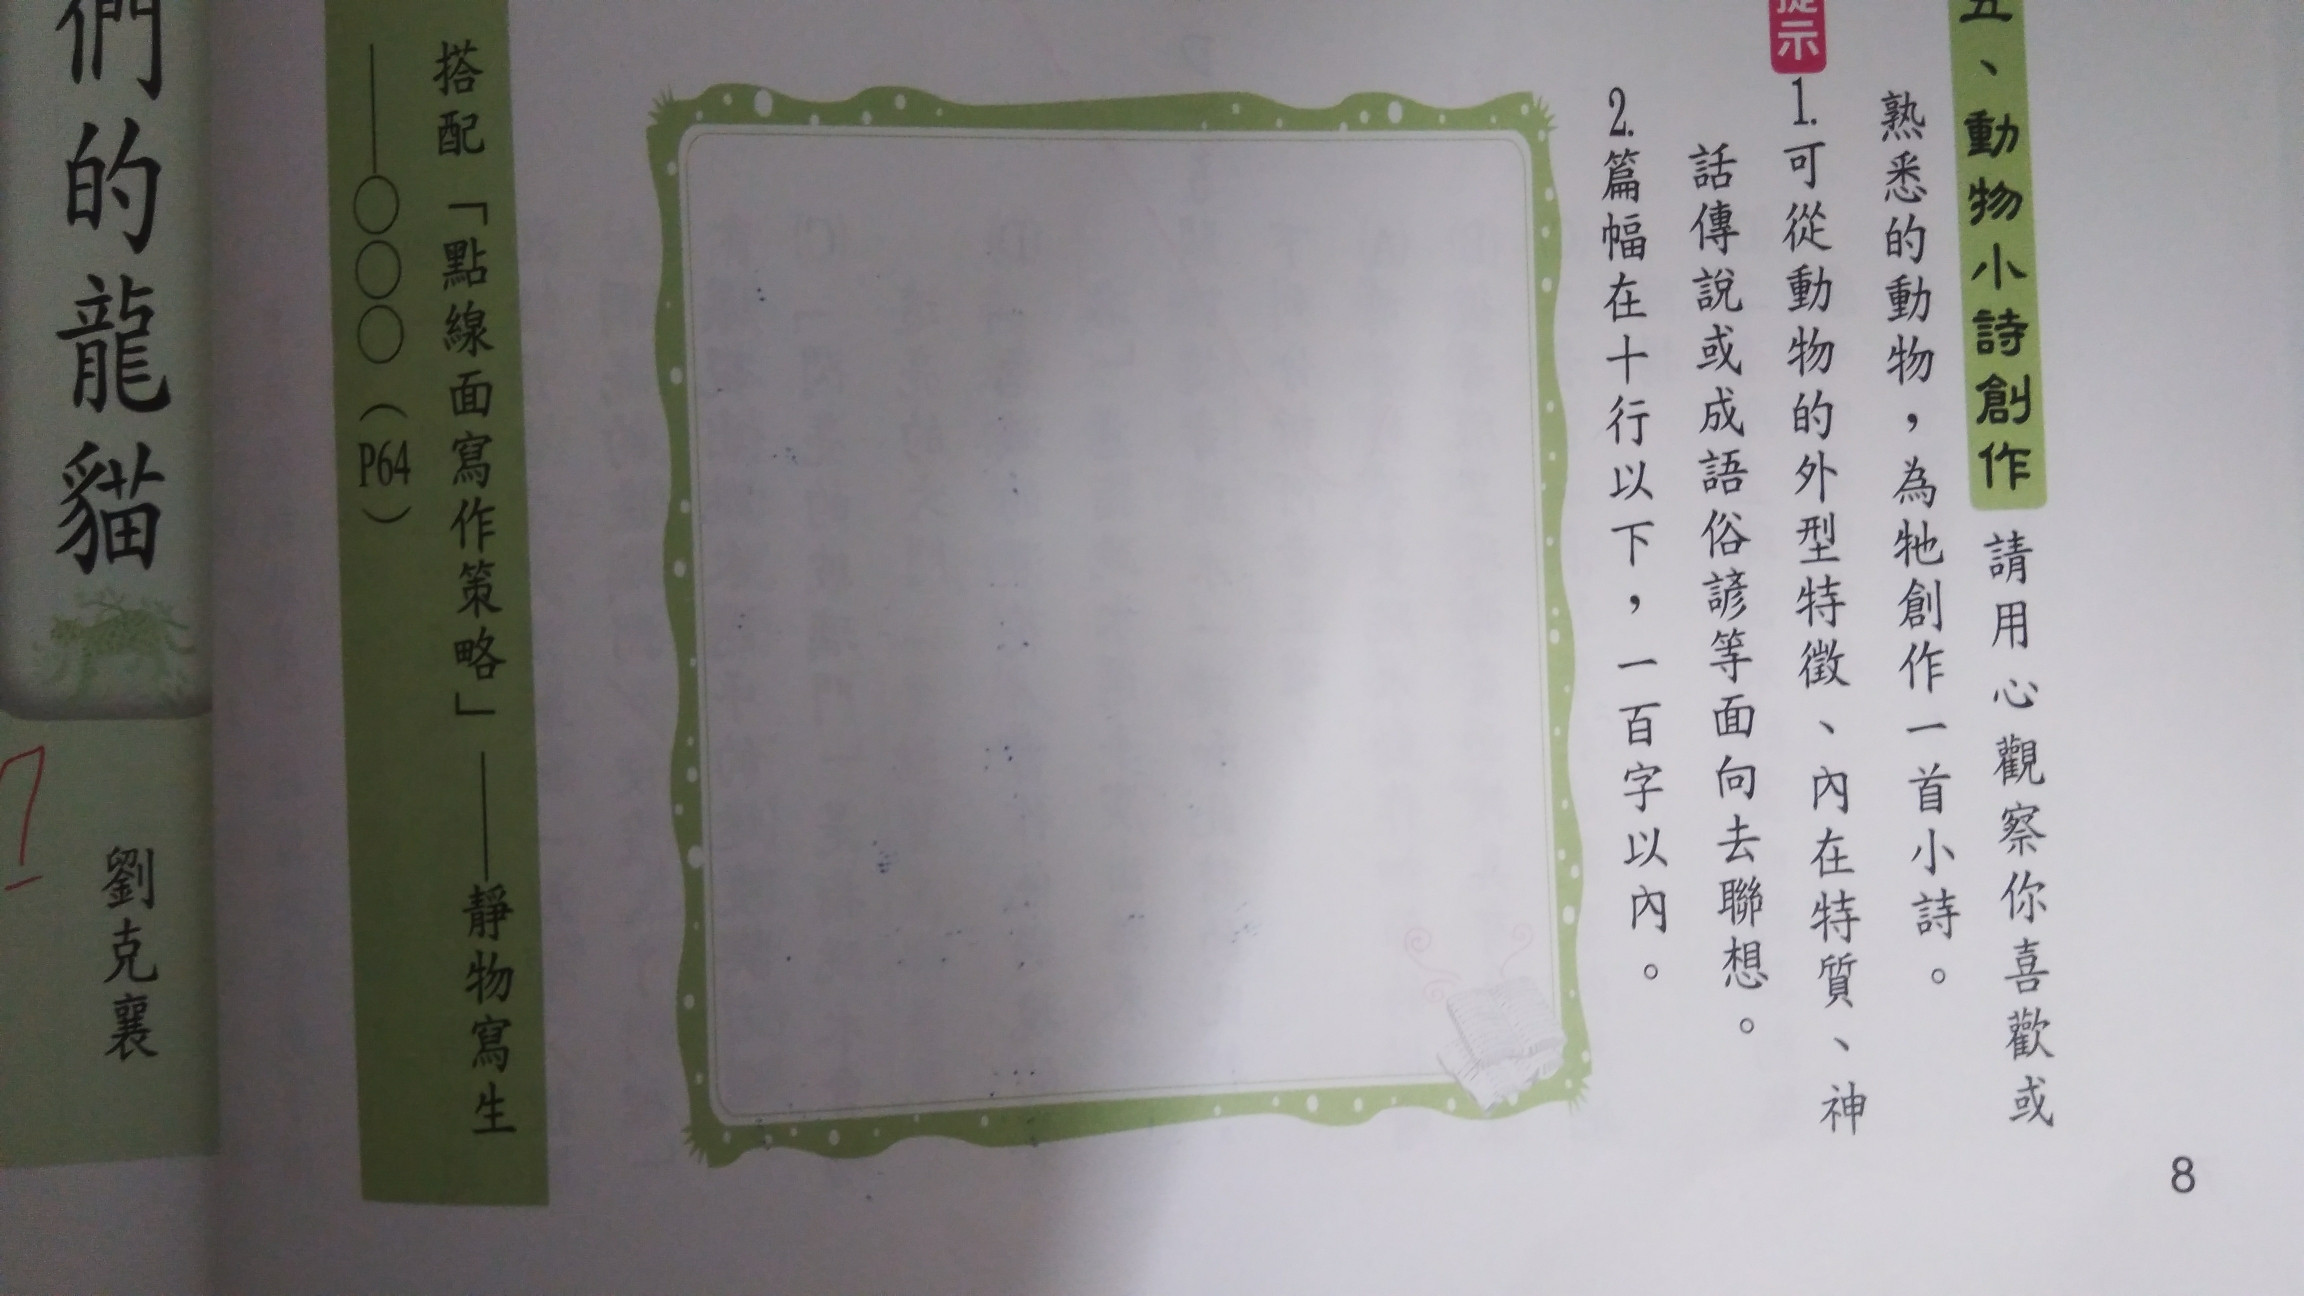 五、動物小詩創作 請用心觀察你喜歡或
熟悉的動物，為牠創作一首小詩。
提示 1.可從動物的外型特徵、內在特質、神
話傳說或成語俗諺等面向去聯想。
2.篇幅在十行以下，一百字以內。
搭配「點線面寫作策略」——靜物寫生
——○○○（P64）
8
們的龍貓
劉克襄